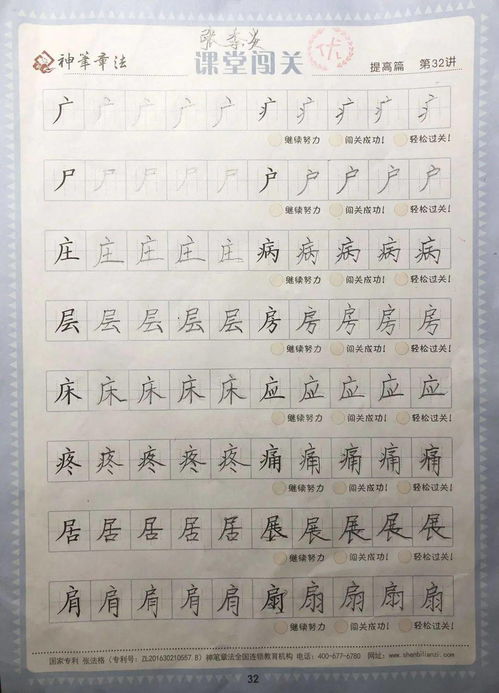 神笔章法
课堂闯关
优
提高篇 第32讲
广 广 广 广 广 疒 疒 疒 疒 疒
继续努力 闯关成功! 轻松过关!
尸 尸 尸 尸 尸 户 户 户 户 户
继续努力 闯关成功! 轻松过关!
庄 庄 庄 庄 庄 病 病 病 病 病
继续努力 闯关成功! 轻松过关!
层 层 层 层 层 房 房 房 房 房
继续努力 闯关成功! 轻松过关!
床 床 床 床 床 应 应 应 应 应
继续努力 闯关成功! 轻松过关!
疼 疼 疼 疼 疼 痛 痛 痛 痛 痛
继续努力 闯关成功! 轻松过关!
居 居 居 居 居 展 展 展 展 展
继续努力 闯关成功! 轻松过关!
肩 肩 肩 肩 肩 扇 扇 扇 扇 扇
继续努力 闯关成功! 轻松过关!
国家专利 张法格(专利号:ZL201630210557.8)神笔章法全国连锁教育机构 电话:400-677-6780 网址:www.shenbilianzi.com
32